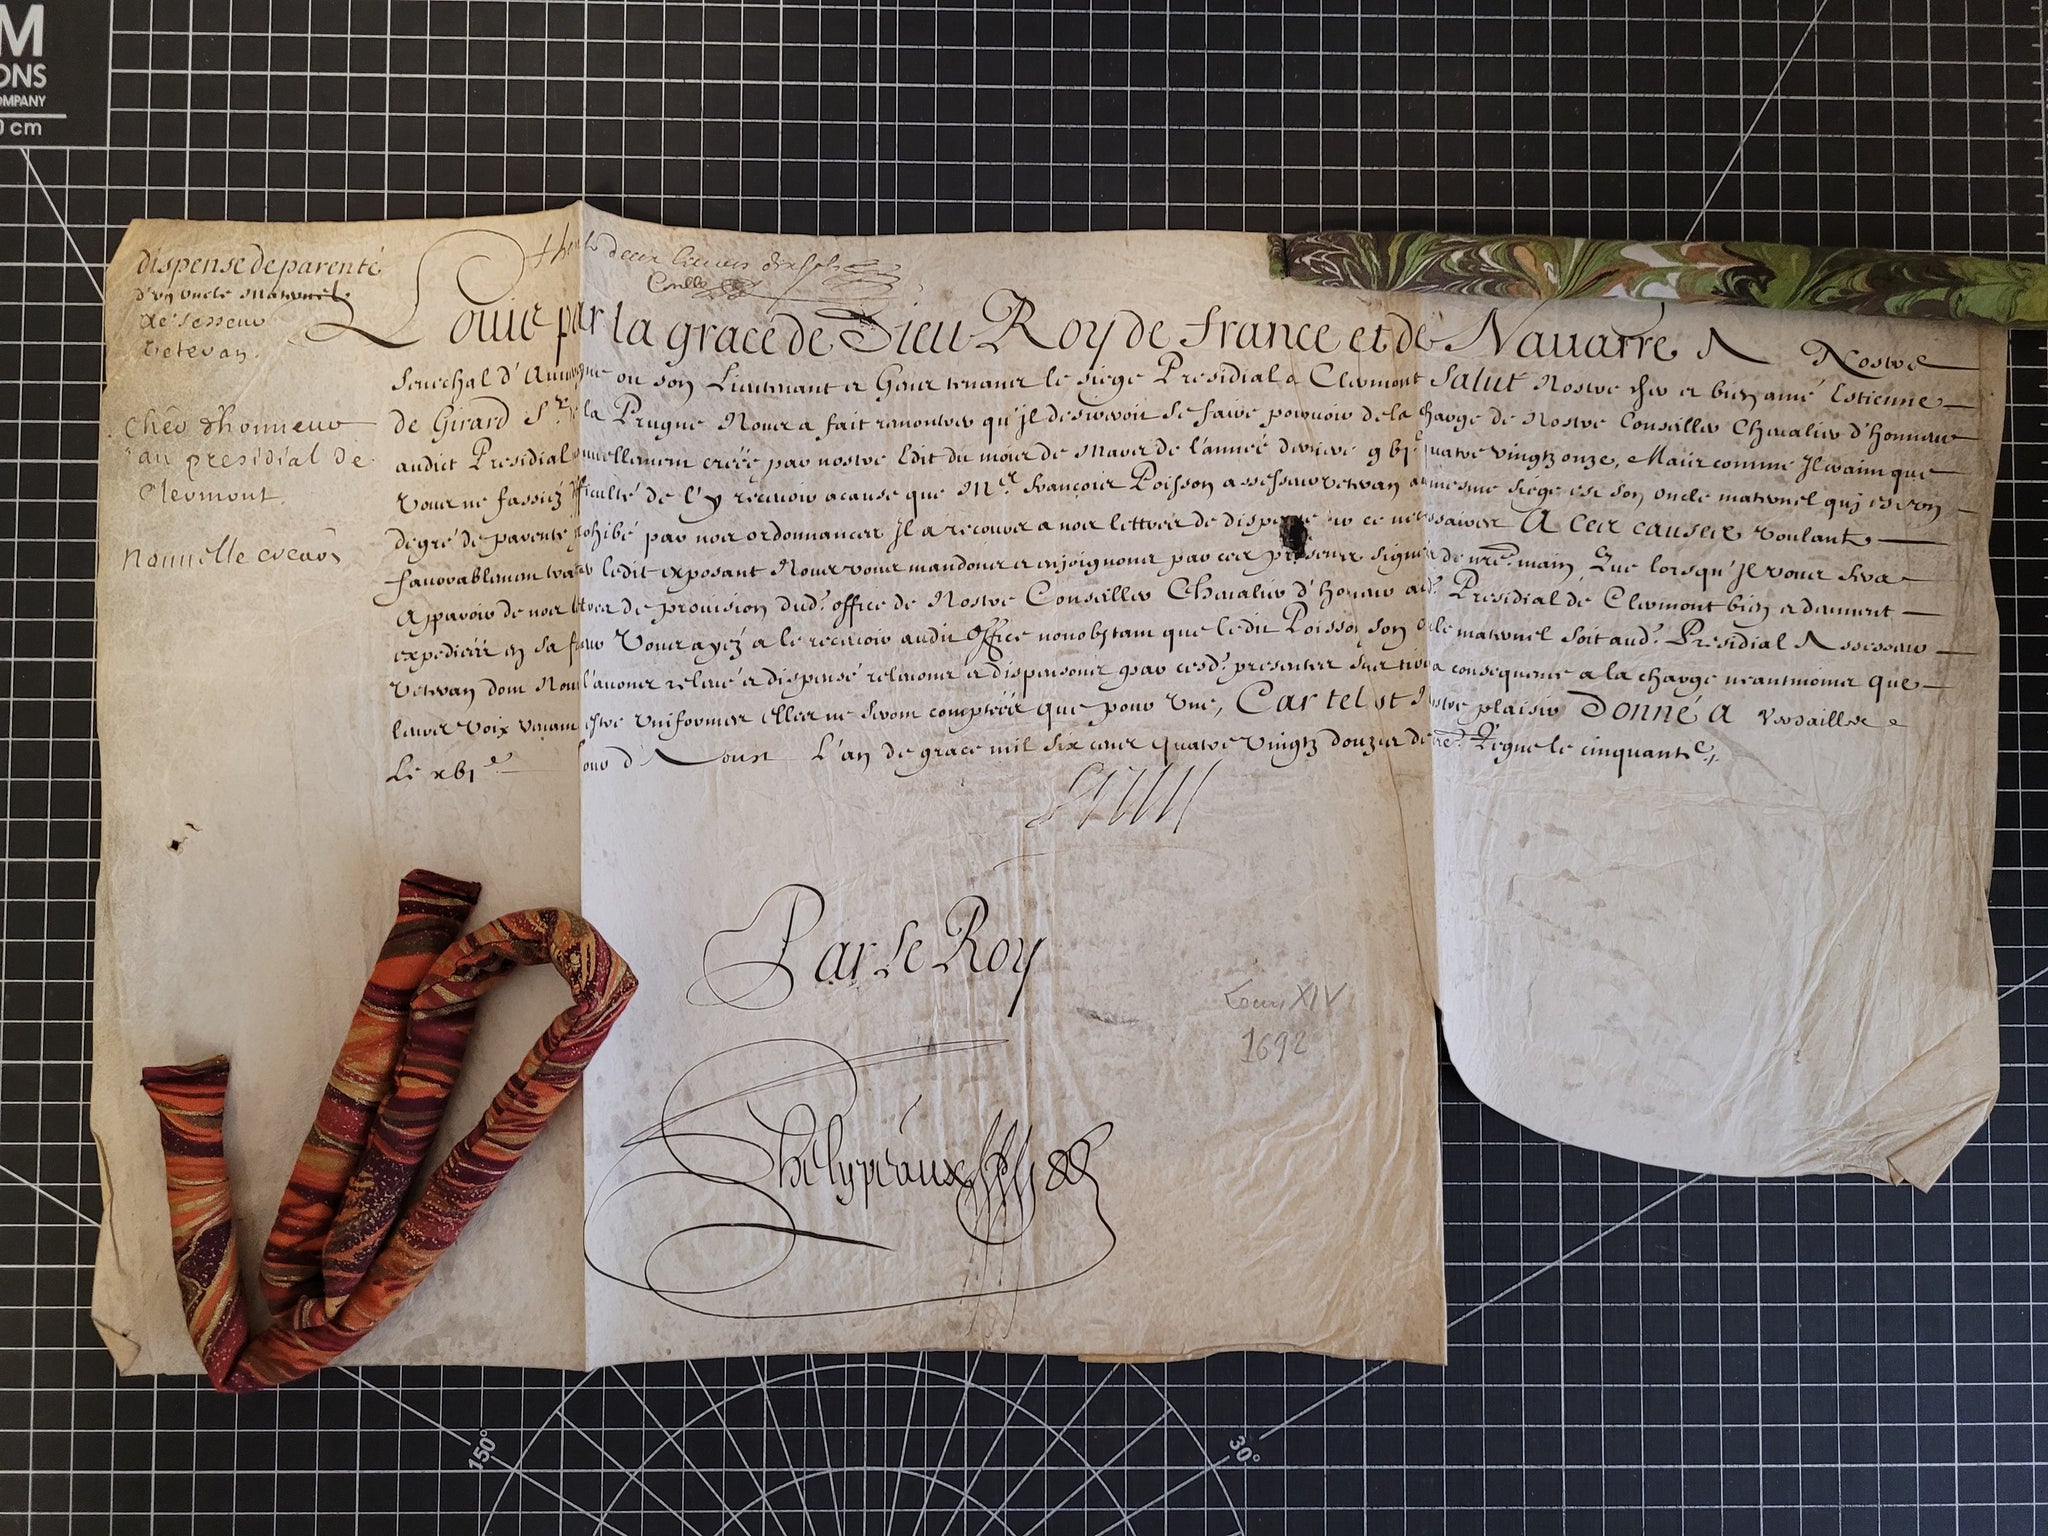 M
ONS
OMPANY
0 cm
dispense de parenté
d'un oncle maternel
assesseur
veteran.
Chēr d'honneur
au presidial de
Clermont.
Nouuelle creaōn
deux
Louis par la grace de Dieu Roy de france et de Nauarre A Nostre
Senechal d'Auuergne ou son Lieutenant et Gens tenans le siège Presidial a Clermont Salut Nostre cher et bien amé Estienne
de Girard S.r de la Prugne Nous a fait remontrer qu'il desireroit se faire pouruoir de la charge de Nostre Conseiller Cheualier d'honneur
audict Presidial nouuellement créée par nostre Edit du mois de Mars de l'année derniere quatre vingtz onze, Mais comme Il craint que
Vous ne fassiéz difficulté de l'y receuoir a cause que M.r François Poisson assesseur veteran au mesme siége est son oncle maternel qui est un
degré de parenté prohibé par nos ordonnances Il a recours a nos lettres de dispense sur ce necessaires A Ces causes voulant
fauorablement traiter ledit exposant Nous vous mandons et enjoignons par ces presentes signées de nr̄e main, Que lorsqu'il vous fera
Apparoir de nos lettres de prouision dud. office de Nostre Conseiller Cheualier d'honneur aud. Presidial de Clermont bien et duement
expediéés en sa faueur Vous ayéz a le receuoir audit Office nonobstant que ledit Poisson son oncle maternel soit aud. Presidial Assesseur
Veteran dont Nous l'auons releué et dispensé releuons et dispensons par cesd. presentes sans tirer a consequence a la charge neantmoins que
leurs voix venant a estre Uniformes elles ne seront comptéés que pour Une, Car tel est Nostre plaisir Donné a Versailles
Le xbi.e Jour d'Aoust L'an de grace mil six cens quatre vingtz douze et de nr̄e Regne le cinquante.,
Louis
Par le Roy
Louis XIV
1692
Phelypeaux
150°
30°